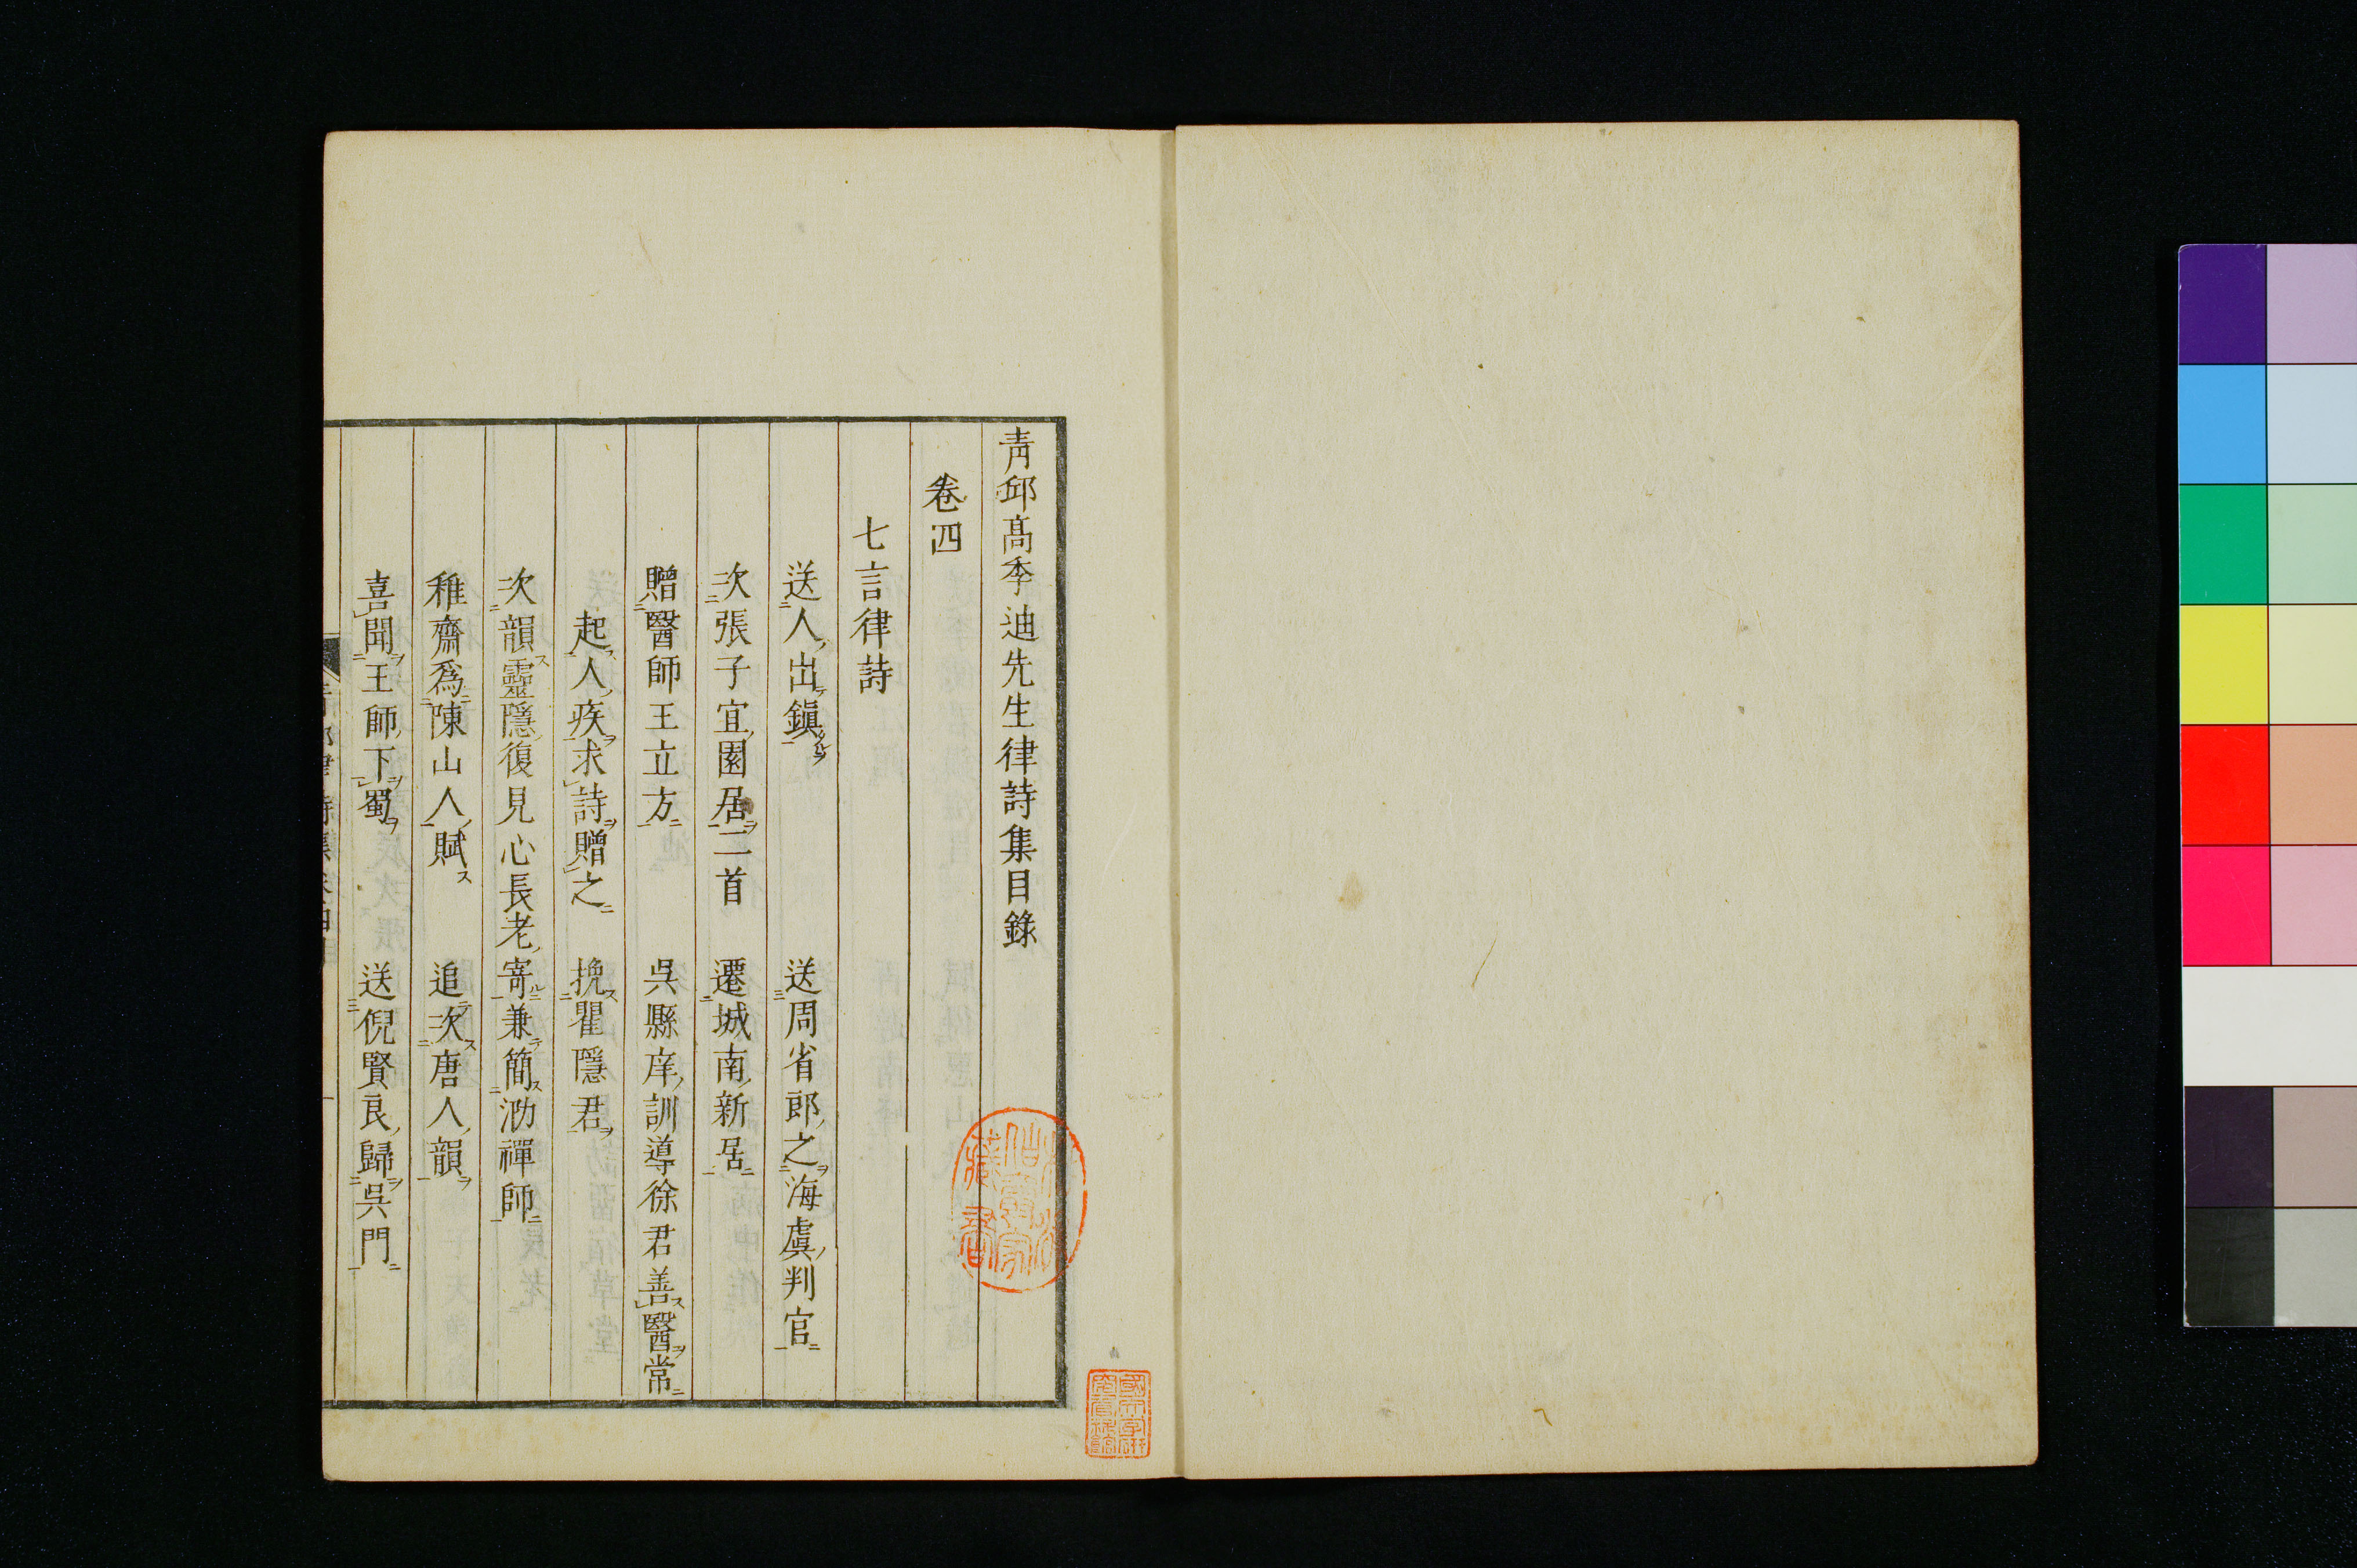 青邱高季迪先生律詩集目錄
卷四
七言律詩
送人出鎭 送周省郎之海虞判官
次張子宜園居二首 遷城南新居
贈醫師王立方 吳縣庠訓導徐君善醫常
起人疾求詩贈之 挽瞿隱君
次韻靈隱復見心長老寄兼簡泐禪師
稚齋爲陳山人賦 追次唐人韻
喜聞王師下蜀 送倪賢良歸吳門